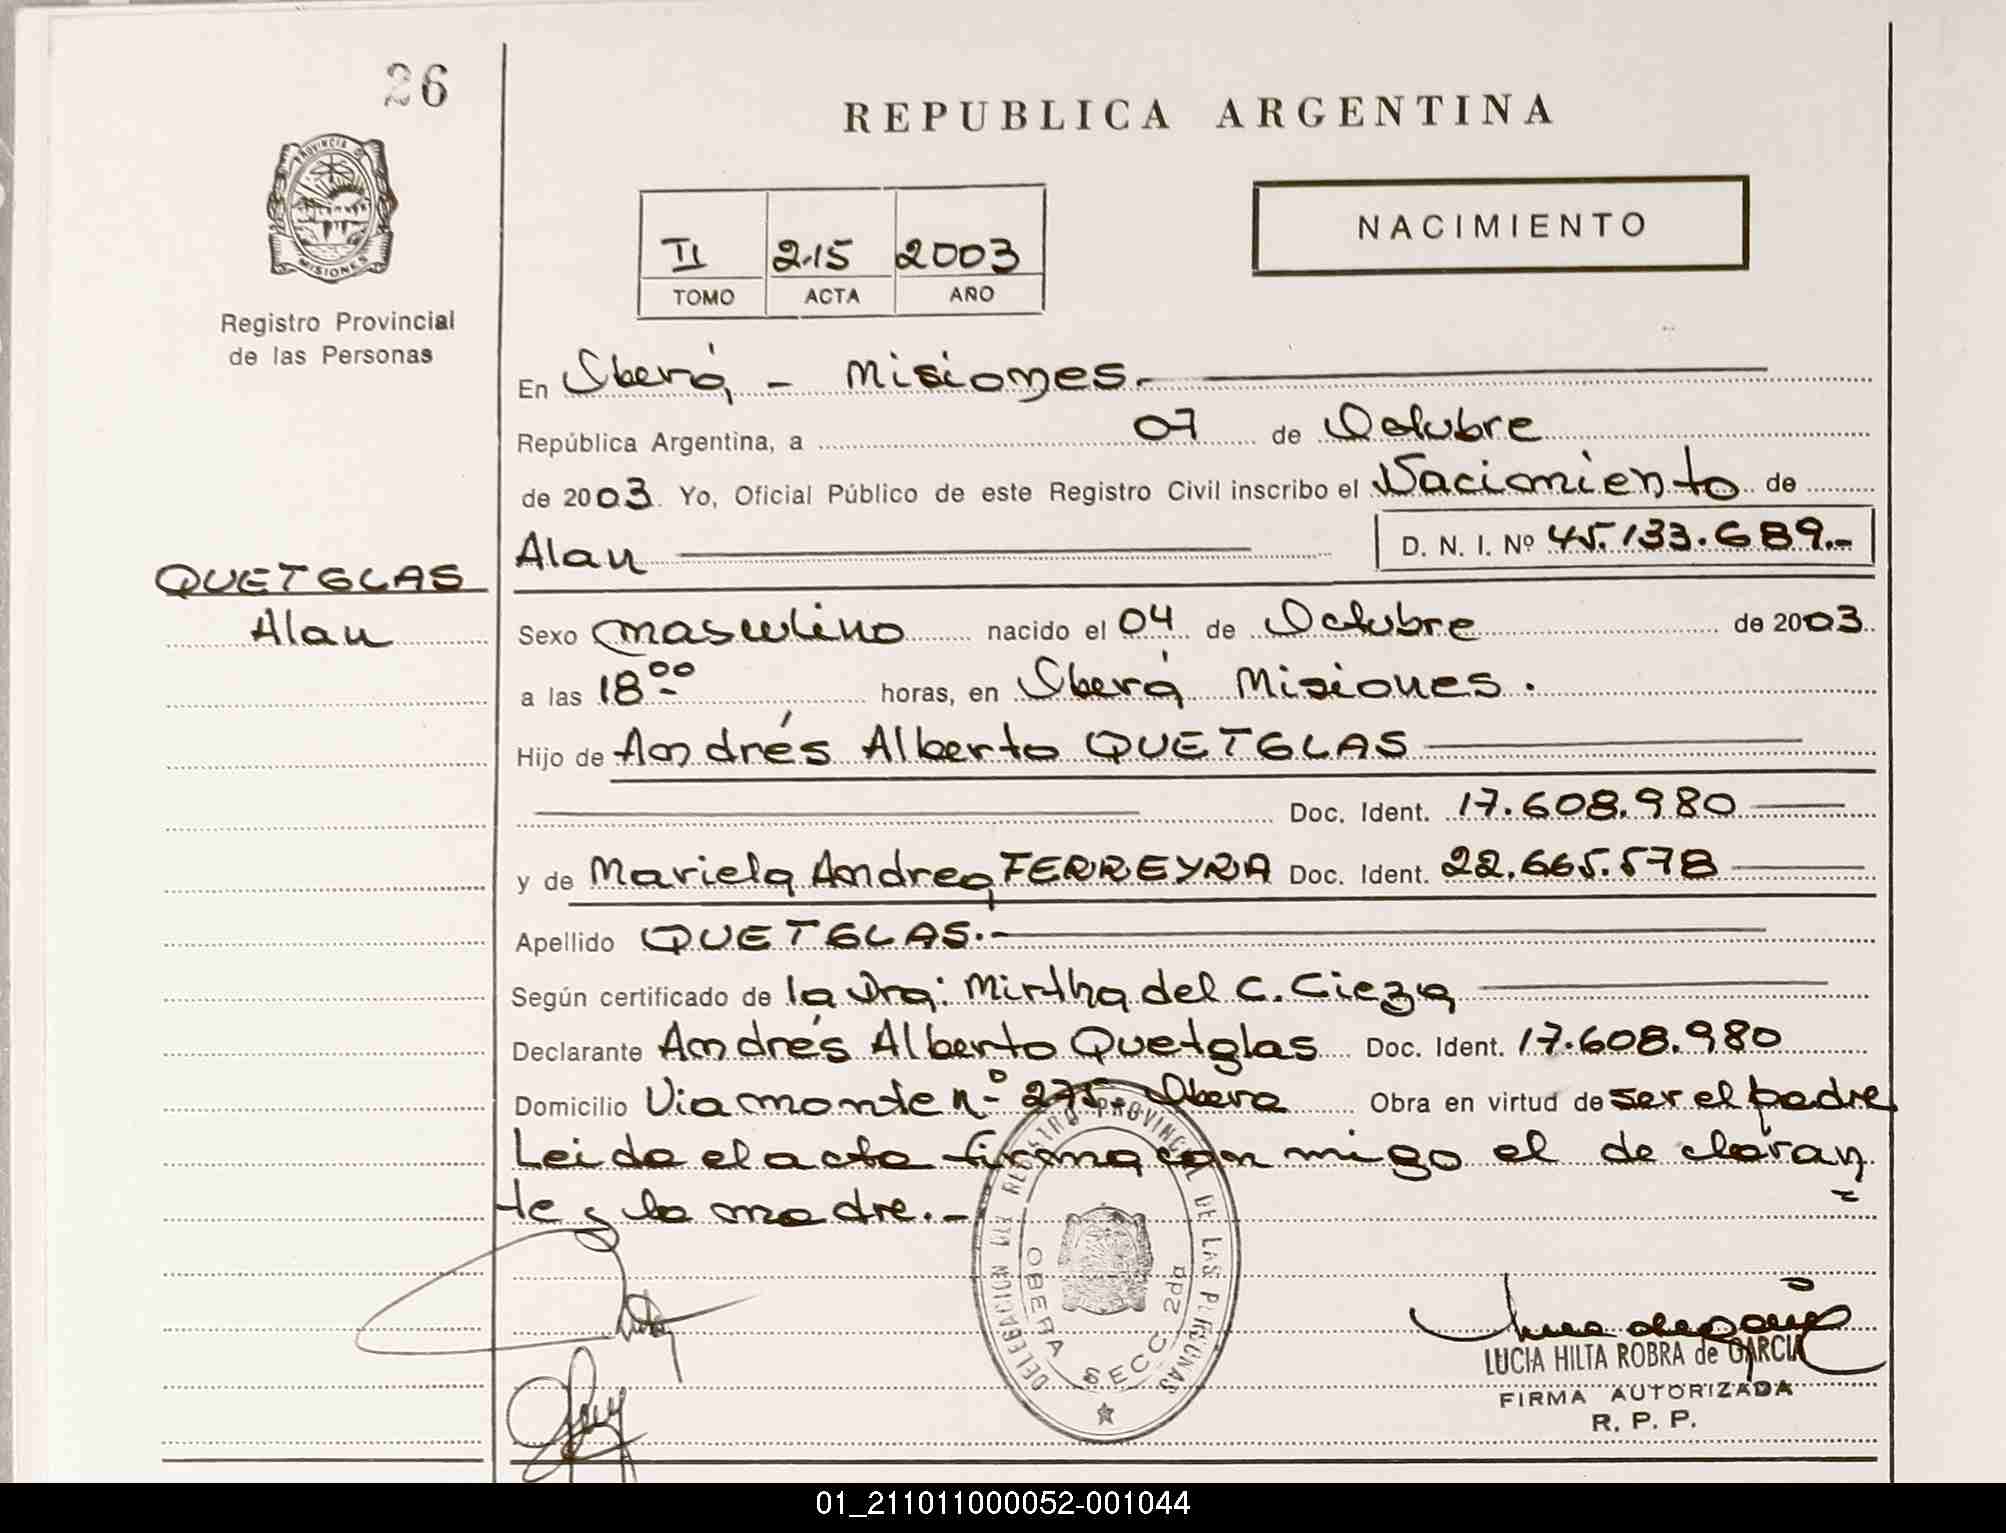 26
REPUBLICA ARGENTINA
PROVINCIA DE
MISIONES
Registro Provincial
de las Personas
NACIMIENTO
II 215 2003
TOMO ACTA AÑO
En Oberá, - Misiones.-
República Argentina, a 07 de Octubre
de 2003. Yo, Oficial Público de este Registro Civil inscribo el Nacimiento de
Alan D. N. I. Nº 45.133.689.-
QUETGLAS
Alan
Sexo masculino nacido el 04 de Octubre de 2003
a las 18 00 horas, en Oberá Misiones.
Hijo de Andrés Alberto QUETGLAS
Doc. Ident. 17.608.980
y de Mariela Andrea, FERREYRA Doc. Ident. 22.665.578
Apellido QUETGLAS.-
Según certificado de la Dra: Mirtha del C. Cieza
Declarante Andrés Alberto Quetglas Doc. Ident. 17.608.980
Domicilio Viamonte nº 275- Obera Obra en virtud de ser el padre
Leida el acta firma con migo el de claran
te y la madre.-
DELEGACION DEL REGISTRO PROVINCIAL DE LAS PERSONAS
OBERA SECC. 2da
LUCIA HILTA ROBRA de GARCIA
FIRMA AUTORIZADA
R. P. P.
01_211011000052-001044